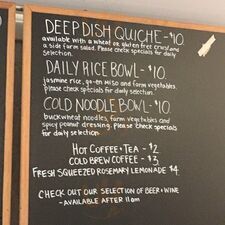 DEEP DISH QUICHE - $10
available with a wheat or gluten free crust and
a side farm salad. Please check specials for daily
selection.
DAILY RICE BOWL - $10.
jasmine rice, go-en miso and farm vegetables.
please check specials for daily selection.
COLD NOODLE BOWL - $10
buckwheat noodles, farm vegetables and
spicy peanut dressing. Please check specials
for daily selection
HOT COFFEE + TEA - $2
COLD BREW COFFEE - $3
FRESH SQUEEZED ROSEMARY LEMONADE $4
CHECK OUT OUR SELECTION OF BEER + WINE
- AVAILABLE AFTER 11am